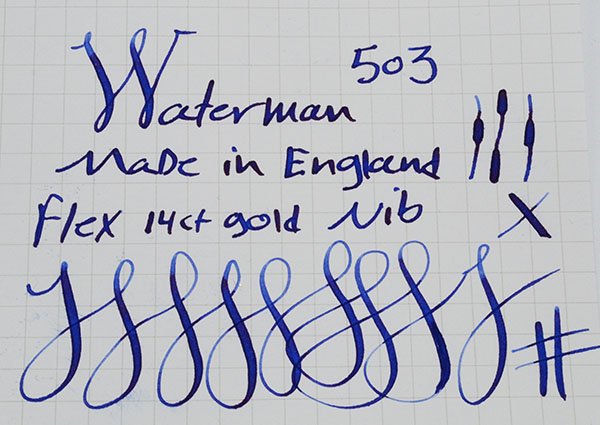 Waterman 503
Made in England
Flex 14ct gold Nib X
#